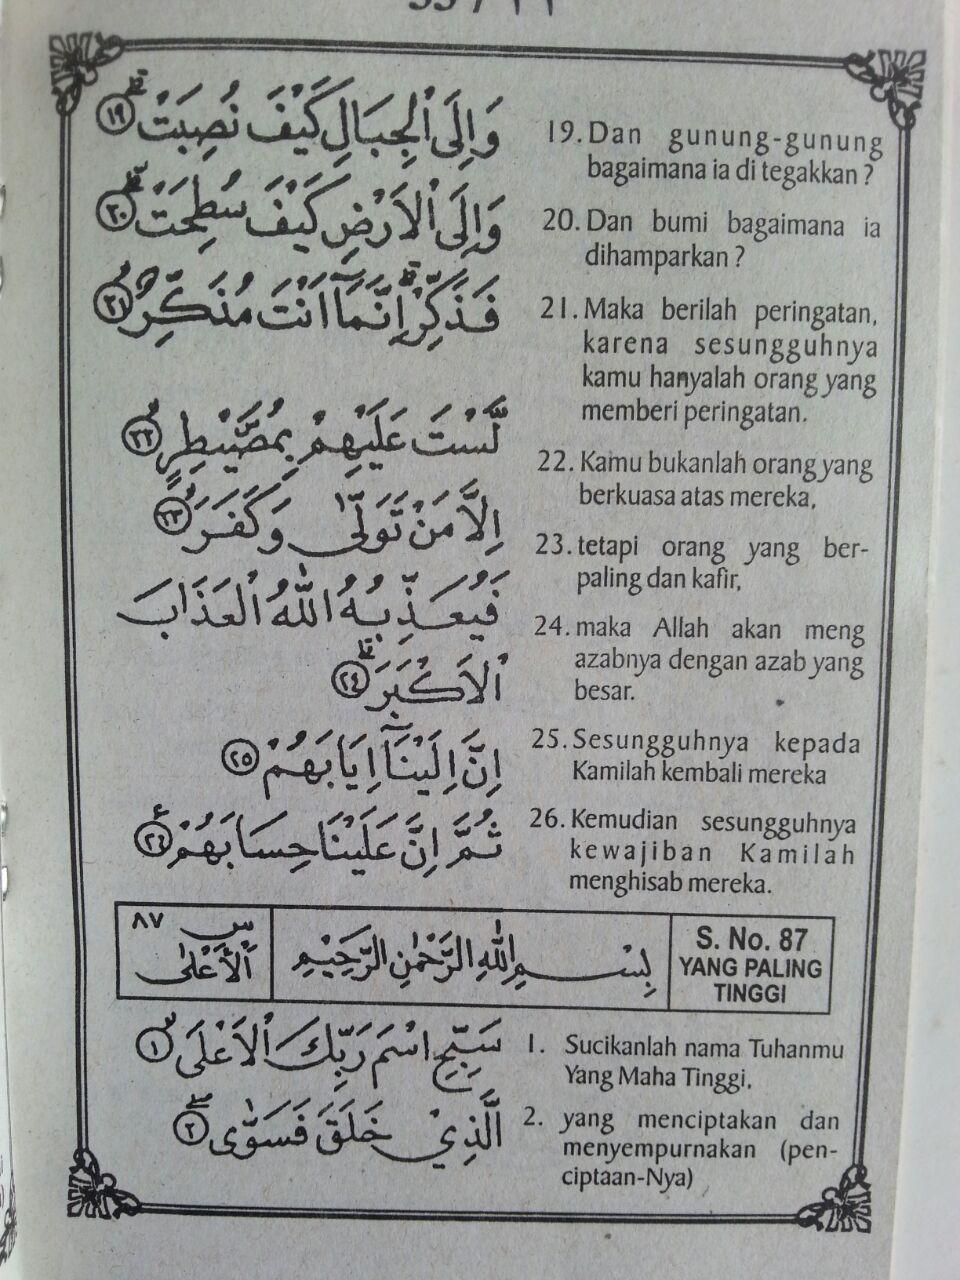 وَاِلَى الْجِبَالِ كَيْفَ نُصِبَتْ ۗ ﴿١٩﴾
19. Dan gunung-gunung
bagaimana ia di tegakkan ?
وَاِلَى الْاَرْضِ كَيْفَ سُطِحَتْ ۗ ﴿٢٠﴾
20. Dan bumi bagaimana ia
dihamparkan ?
فَذَكِّرْ اِنَّمَآ اَنْتَ مُذَكِّرٌ ﴿٢١﴾
21. Maka berilah peringatan,
karena sesungguhnya
kamu hanyalah orang yang
memberi peringatan.
لَّسْتَ عَلَيْهِمْ بِمُصَۜيْطِرٍ ﴿٢٢﴾
22. Kamu bukanlah orang yang
berkuasa atas mereka,
اِلَّا مَنْ تَوَلّٰى وَكَفَرَ ﴿٢٣﴾
23. tetapi orang yang ber-
paling dan kafir,
فَيُعَذِّبُهُ اللّٰهُ الْعَذَابَ
الْاَكْبَرَ ۗ ﴿٢٤﴾
24. maka Allah akan meng
azabnya dengan azab yang
besar.
اِنَّ اِلَيْنَآ اِيَابَهُمْ ﴿٢٥﴾
25. Sesungguhnya kepada
Kamilah kembali mereka
ثُمَّ اِنَّ عَلَيْنَا حِسَابَهُمْ ﴿٢٦﴾
26. Kemudian sesungguhnya
kewajiban Kamilah
menghisab mereka.
س ٨٧
الْأَعْلٰى
بِسْمِ اللّٰهِ الرَّحْمٰنِ الرَّحِيْمِ
S. No. 87
YANG PALING
TINGGI
سَبِّحِ اسْمَ رَبِّكَ الْاَعْلَى ﴿١﴾
1. Sucikanlah nama Tuhanmu
Yang Maha Tinggi,
الَّذِيْ خَلَقَ فَسَوّٰى ﴿٢﴾
2. yang menciptakan dan
menyempurnakan (pen-
ciptaan-Nya)